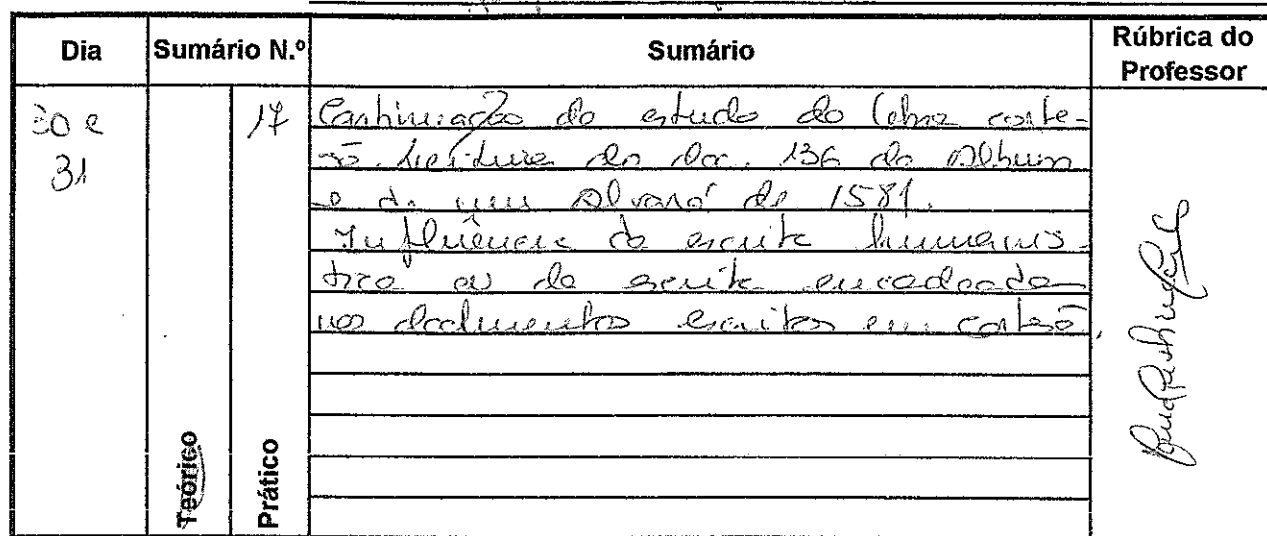 Dia Sumário N.º Sumário Rúbrica do Professor
30 e 17 Continuação do estudo da letra corte-
31 sã. Leitura do doc. 136 do Álbum
e de um Alvará de 1581.
Influência da escrita humanís-
tica ou da escrita encadeada
nos documentos escritos em cortesã.
Teórico
Prático